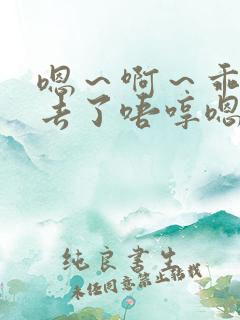 嗯～啊～乖
丢了唔哼嗯
纯良书生
未经同意禁止转载